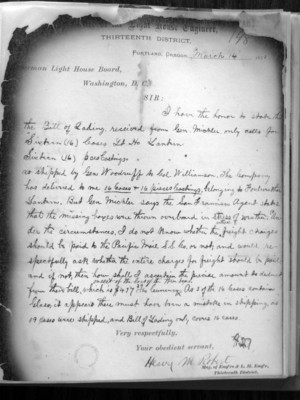 Light House Engineer,
THIRTEENTH DISTRICT,
PORTLAND, OREGON, March
Light House Board,
Washington, D. C.
SIR:
I have the honor to state that
the Bill of Lading, received from Gen Mickler, only calls for
Sixteen (16) Cases Lt. Ho. Lantern
Sixteen (16) pcs castings
as shipped by Gen Woodruff to Col. Williamson. The Company
has delivered to me 16 cases & 16 pieces castings, belonging to
Lantern. But Gen Mickler says the San Francisco Agent states
that the missing boxes were thrown overboard in stress of weather. Un-
der the circumstances, I do not know whether the freight charges
should be paid to the Pacific Mail S.S. Co. or not, and would re-
spectfully ask whether the entire charges for freight should be paid
and if not, then how shall I ascertain the precise amount to deduct
from their bill, which is
Please it appears there must have been a mistake in shipping, as
19 cases were shipped, and Bill of Lading only covers 16 cases.
Very respectfully,
Your obedient servant,
Henry M. Robert
Maj. of Eng'rs & L. H. Eng'r,
Thirteenth District.